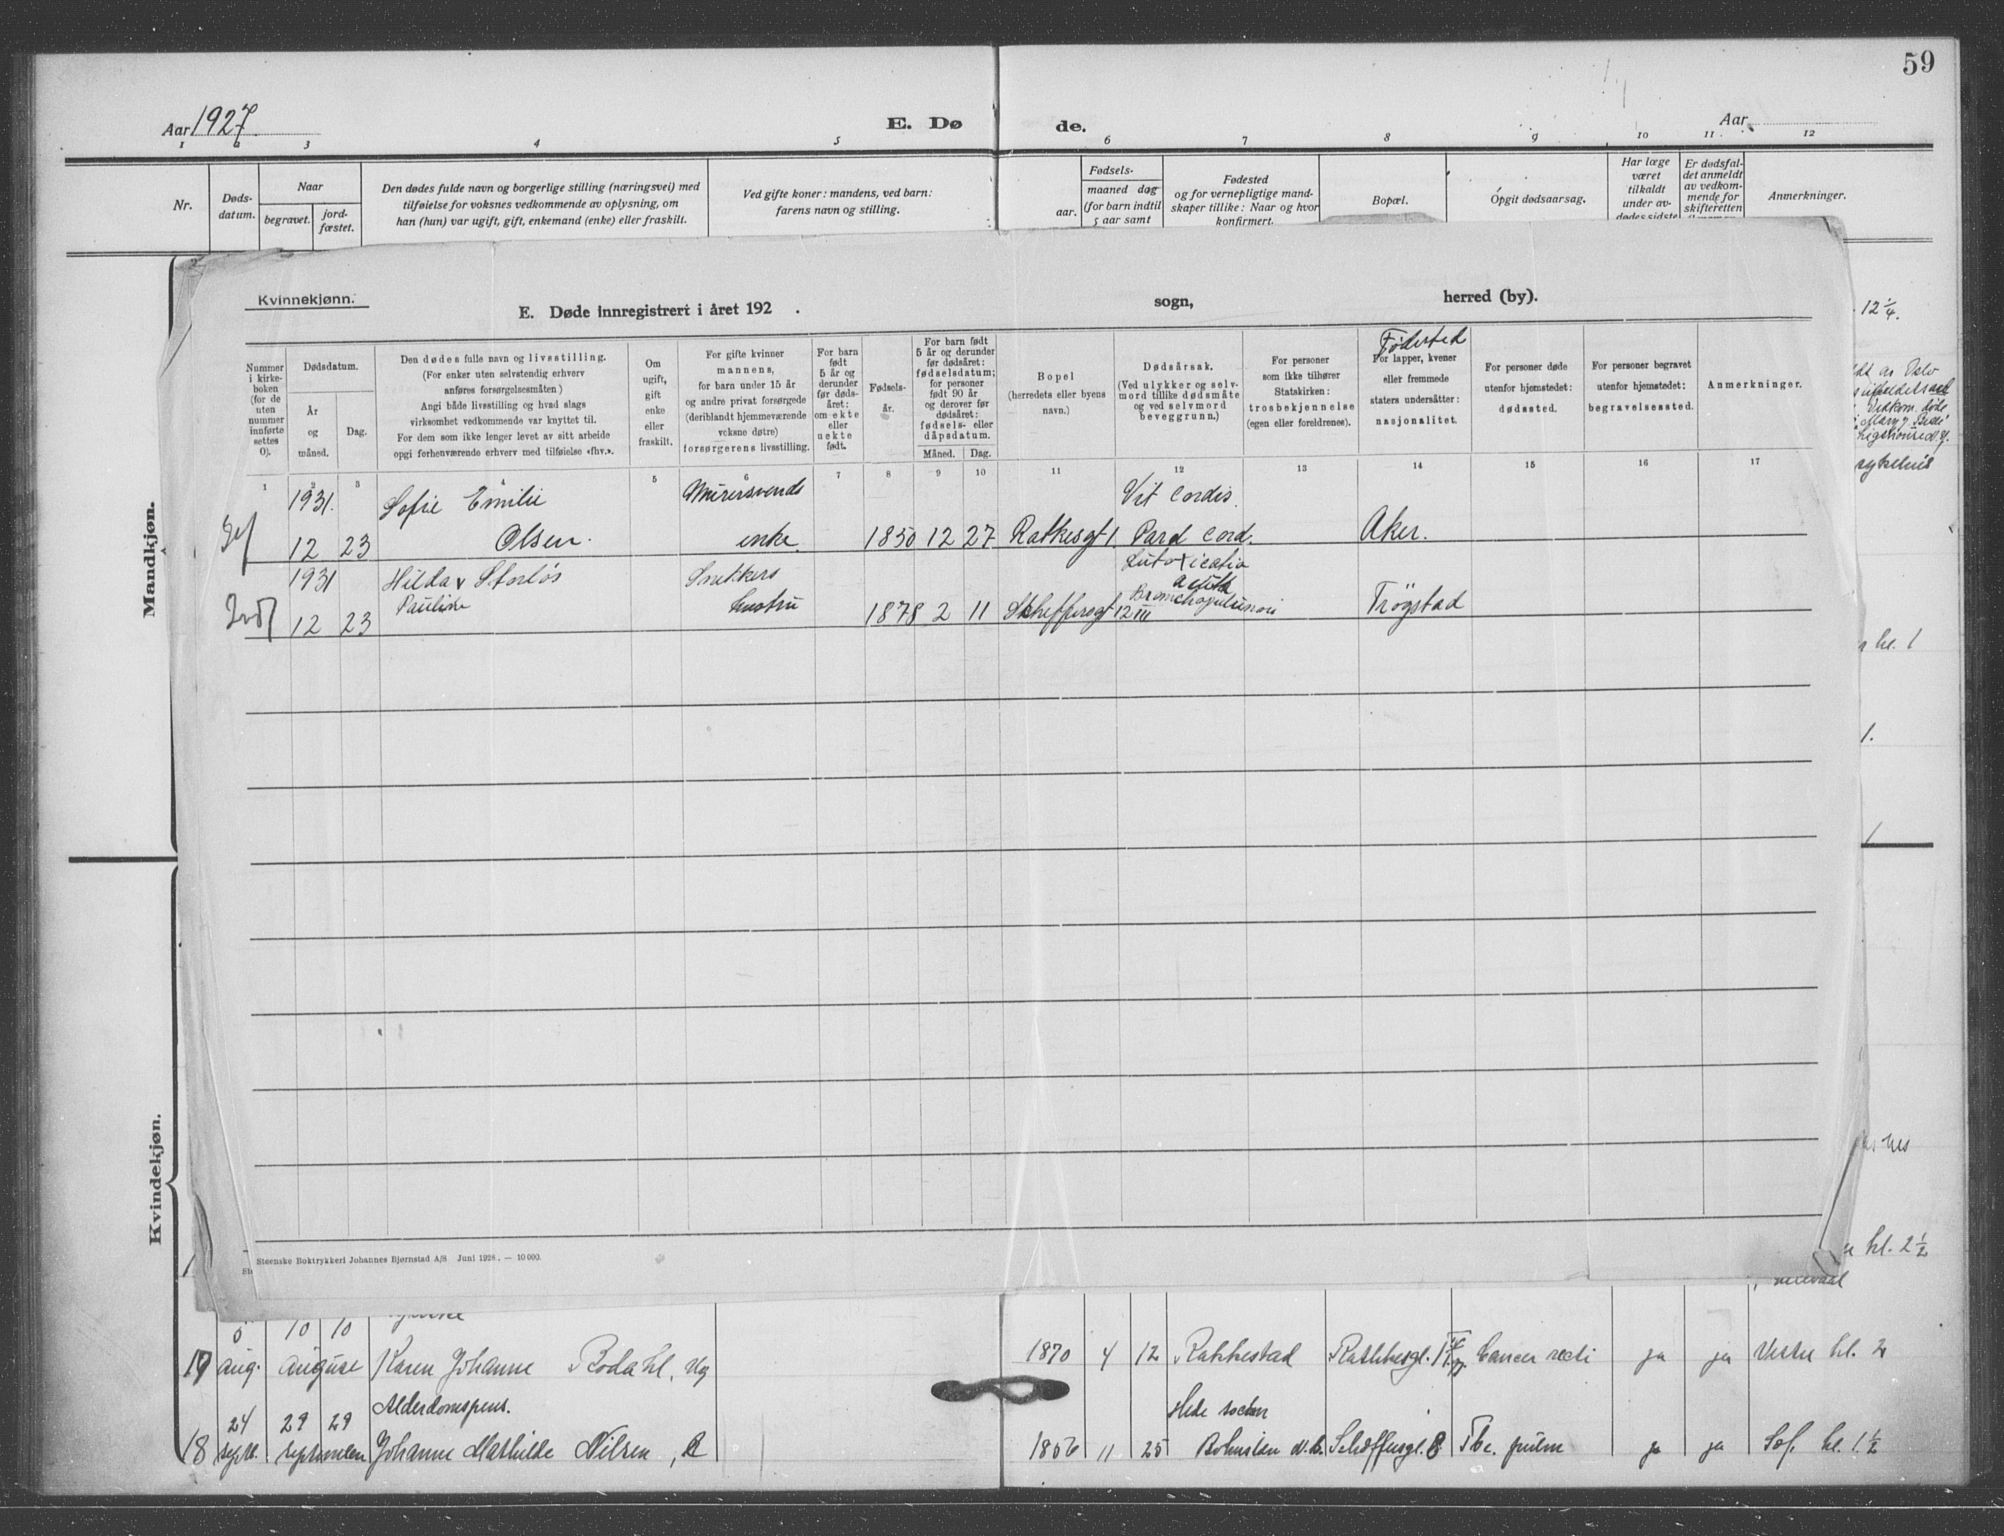 59
Aar 1927.
E. Dø de.
Aar
1 2 3 4 5 6 7 8 9 10 11 12
Nr.
Døds-
datum.
Naar
begravet.
jord-
fæstet.
Den dødes fulde navn og borgerlige stilling (næringsvei) med
tilføielse for voksnes vedkommende av oplysning, om
han (hun) var ugift, gift, enkemand (enke) eller fraskilt.
Ved gifte koner: mandens, ved barn:
farens navn og stilling.
Fødsels-
aar.
maaned dag
(for barn indtil
5 aar samt
Fødested
og for vernepligtige mand-
skaper tillike: Naar og hvor
konfirmert.
Bopæl.
Opgit dødsaarsag.
Har læge
været
tilkaldt
under av-
dødes sidste
Er dødsfal-
det anmeldt
av vedkom-
mende for
skifteretten
Anmerkninger.
Mandkjøn.
Kvinnekjønn.
E. Døde innregistrert i året 192 .
sogn,
herred (by).
Nummer
i kirke-
boken
(for de
uten
nummer
innførte
settes
0).
Dødsdatum.
År
og
måned.
Dag.
Den dødes fulle navn og livsstilling.
(For enker uten selvstendig erhverv
anføres forsørgelsesmåten)
Angi både livsstilling og hvad slags
virksomhet vedkommende var knyttet til.
For dem som ikke lenger levet av sitt arbeide
opgi forhenværende erhverv med tilføielse «fhv.».
Om
ugift,
gift
enke
eller
fraskilt.
For gifte kvinner
mannens,
for barn under 15 år
og andre privat forsørgede
(deriblandt hjemmeværende
voksne døtre)
forsørgerens livsstilling.
For barn
født
5 år og
derunder
før døds-
året:
om ekte
eller
uekte
født.
Fødsels-
år.
For barn født
5 år og derunder
før dødsåret:
fødselsdatum;
for personer
født 90 år
og derover før
dødsåret:
fødsels- eller
dåpsdatum.
Måned. Dag.
Bopel
(herredets eller byens
navn.)
Dødsårsak.
(Ved ulykker og selv-
mord tillike dødsmåte
og ved selvmord
beveggrunn.)
For personer
som ikke tilhører
Statskirken:
trosbekjennelse
(egen eller foreldrenes).
Fødested
For lapper, kvener
eller fremmede
staters undersåtter:
nasjonalitet.
For personer døde
utenfor hjemstedet:
dødssted.
For personer begravet
utenfor hjemstedet:
begravelsessted.
Anmerkninger.
1 2 3 4 5 6 7 8 9 10 11 12 13 14 15 16 17
1931. Sofie Emilie Murersvends Vit cordis.
12 23 Olsen. enke. 1850 12 27 Ratkesgt 1. Pard cord. Aker.
1931 Hilda Storløs Snekkers
12 23 Pauline hustru 1878 2 11 Scheffersgt 12 III Trøgstad
Steenske Boktrykkeri Johannes Bjørnstad A/S Juni 1928. — 10 000.
12 1/4.
hl. 1
1.
1
hl. 2 1/2
Kvindekjøn.
5 10 10
17 aug. august Karen Johanne Bodahl, ug 1870 4 12 Rakkestad Rathkesgt. Cancer recti ja ja Vestre kl. 2
24 29 29 Alderdomspens. Hede socken
18 septemben Johanne Mathilde Nilsen, 1856 11 25 Scheffersgt. 8 Tbc. pulm ja ja Sof. kl. 1 1/2